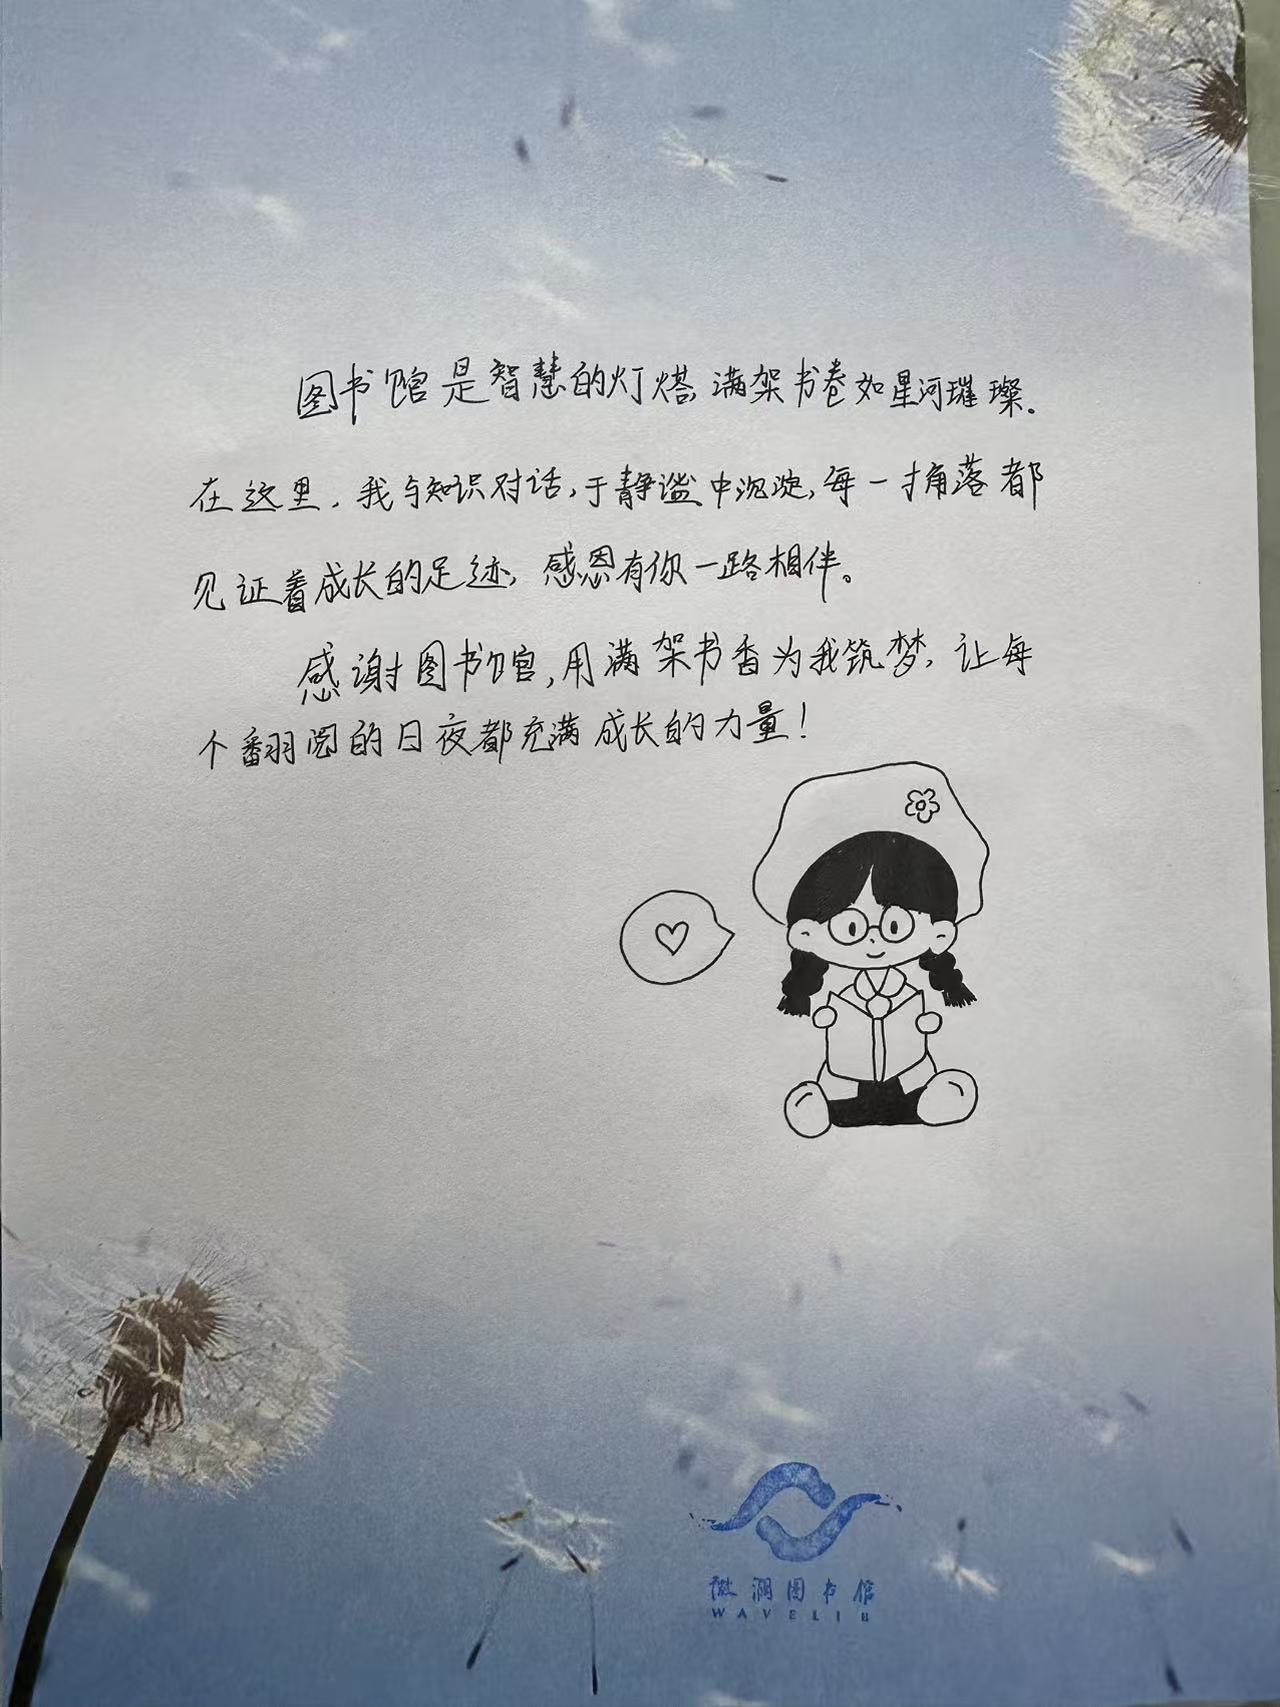 图书馆是智慧的灯塔,满架书卷如星河璀璨.
在这里,我与知识对话,于静谧中沉淀,每一寸角落都
见证着成长的足迹,感恩有你一路相伴。
感谢图书馆,用满架书香为我筑梦,让每
个翻阅的日夜都充满成长的力量!
微澜图书馆
WAVELIB